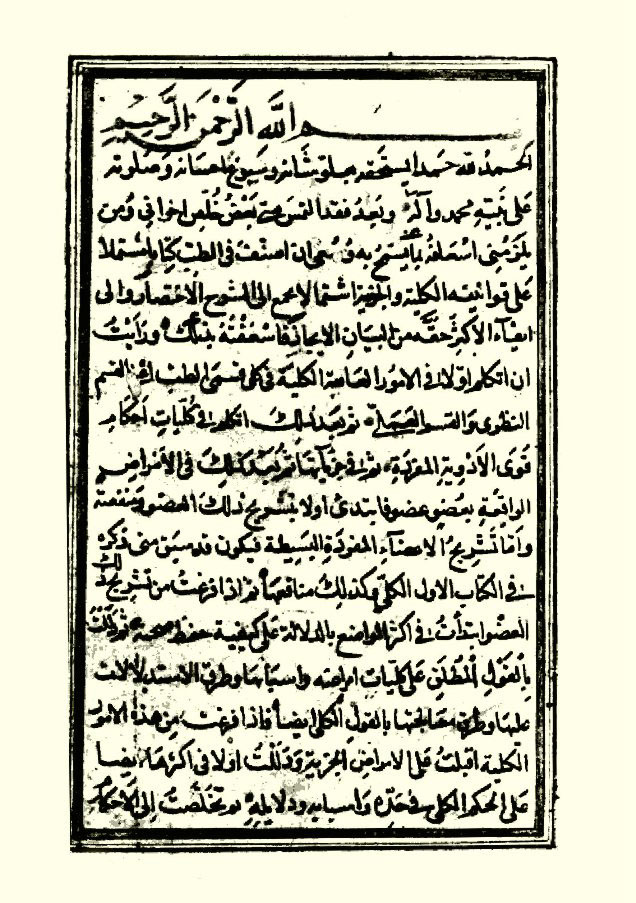 بسم الله الرحمن الرحيم
الحمد لله حمدا يستحقه بعلو شانه وسبوغ احسانه وصلوته
على نبيه محمد وآله وبعد فقد التمس منى بعض خلص اخوانى ومن
يلزمنى اسعافه بما يسمح به وسعى ان اصنف فى الطب كتابا مشتملا
على قوانينه الكلية والجزئية اشتمالا يجمع الى الشرح الاختصار والى
ايفاء الاكثر حقه من البيان الايجاز فاسعفته بذلك ورأيت
ان اتكلم اولا فى الامور العامة الكلية فى كلى قسمى الطب اعنى القسم
النظرى والقسم العملى ثم بعد ذلك اتكلم فى كليات احكام
قوى الأدوية المفردة ثم فى جزئياتها ثم بعد ذلك فى الأمراض
الواقعة بعضو عضو فابتدئ اولا بتشريح ذلك العضو ومنفعته
واما تشريح الاعضاء المفردة البسيطة فيكون قد سبق منى ذكره
فى الكتاب الاول الكلى وكذلك منافعها ثم اذا فرغت من تشريح ذلك
العضو ابتدأت فى اكثر المواضع بالدلالة على كيفية حفظ صحته ثم دللت
بالقول المطلق على كليات امراضه واسبابها وطرق الاستدلالات
عليها وطرق معالجتها بالقول الكلى ايضا فاذا فرغت من هذه الامور
الكلية اقبلت على الامراض الجزئية ودللت اولا فى اكثرها ايضا
على الحكم الكلى فى حده واسبابه ودلايله ثم تخلصت الى الاحكام